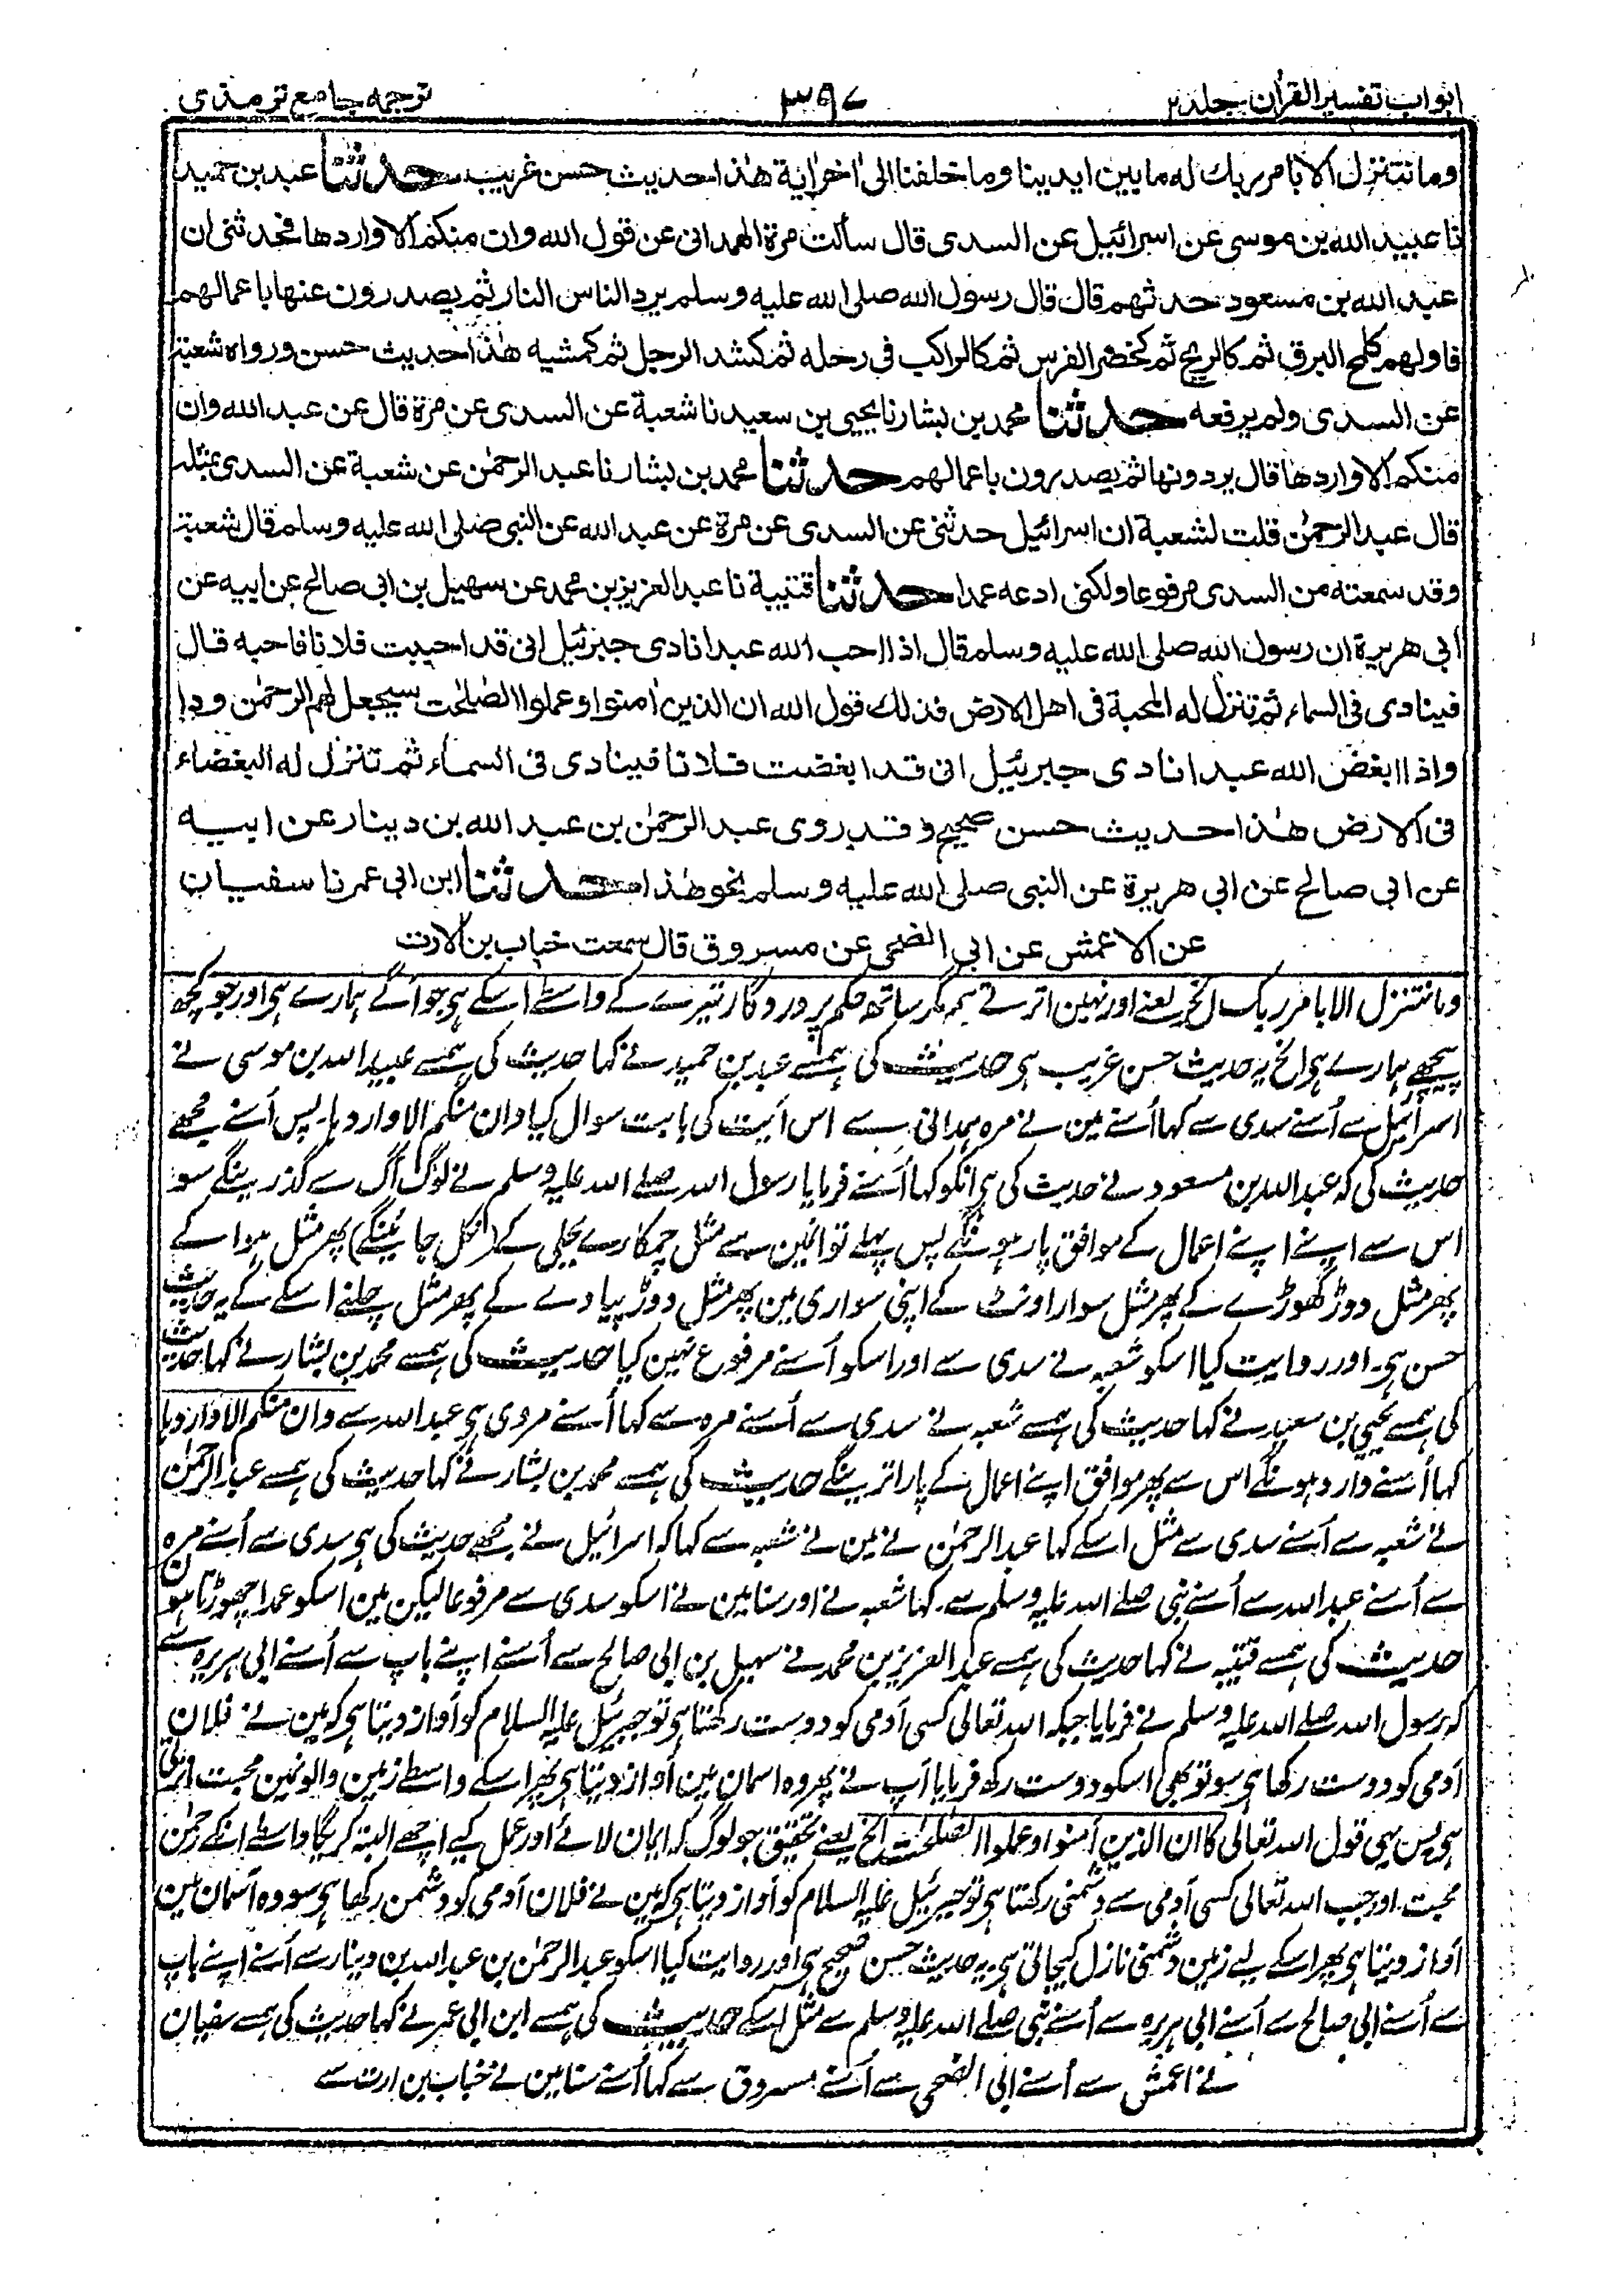 ابواب تفسیر القرآن جلد ۲
۳۹۷
ترجمہ جامع ترمذی
وما نتنزل الا بامر ربك له ما بين ايدينا وما خلفنا الى اخر الاية هذا حديث حسن غريب حدثنا عبد بن حميد
نا عبيد الله بن موسى عن اسرائيل عن السدى قال سألت مرة الهمدانى عن قول الله وان منكم الا واردها فحدثنى ان
عبد الله بن مسعود حدثهم قال قال رسول الله صلى الله عليه وسلم يرد الناس النار ثم يصدرون عنها باعمالهم
فاولهم كلمح البرق ثم كالريح ثم كحضر الفرس ثم كالراكب فى رحله ثم كشد الرجل ثم كمشيه هذا حديث حسن ورواه شعبة
عن السدى ولم يرفعه حدثنا محمد بن بشار نا يحيى بن سعيد نا شعبة عن السدى عن مرة قال عن عبد الله وان
منكم الا واردها قال يردونها ثم يصدرون باعمالهم حدثنا محمد بن بشار نا عبد الرحمٰن عن شعبة عن السدى بمثله
قال عبد الرحمٰن قلت لشعبة ان اسرائيل حدثنى عن السدى عن مرة عن عبد الله عن النبى صلى الله عليه وسلم قال شعبة
وقد سمعته من السدى مرفوعا ولكنى ادعه عمدا حدثنا قتيبة نا عبد العزيز بن محمد عن سهيل بن ابى صالح عن ابيه عن
ابى هريرة ان رسول الله صلى الله عليه وسلم قال اذا احب الله عبدا نادى جبرئيل انى قد احببت فلانا فاحبه قال
فينادى فى السماء ثم تنزل له المحبة فى اهل الارض فذلك قول الله ان الذين اٰمنوا وعملوا الصٰلحٰت سيجعل لهم الرحمٰن ودا
واذا ابغض الله عبدا نادى جبرئيل انى قد ابغضت فلانا فينادى فى السماء ثم تنزل له البغضاء
فى الارض هذا حديث حسن صحيح وقد روى عبد الرحمٰن بن عبد الله بن دينار عن ابيه
عن ابى صالح عن ابى هريرة عن النبى صلى الله عليه وسلم نحو هذا حدثنا ابن ابى عمر نا سفيان
عن الاعمش عن ابى الضحى عن مسروق قال سمعت خباب بن الارت
وما نتنزل الا بامر ربک الخ یعنے اور نہین اترتے ہم مگر ساتھ حکم پروردگار تیرے کے واسطے اسکے ہی جو آگے ہمارے ہی اور جو کچھ
پیچھے ہمارے ہی الخ یہ حدیث حسن غریب ہی حدیث کی ہمسے عبد بن حمید نے کہا حدیث کی ہمسے عبید اللہ بن موسی نے
اسرائیل سے اُسنے سدی سے کہا اُسنے مین نے مرہ ہمدانی سے اس آیت کی بابت سوال کیا وان منکم الا واردہا۔ پس اُسنے مجھے
حدیث کی کہ عبد اللہ بن مسعود نے حدیث کی ہی انکو کہا اُسنے فرمایا رسول اللہ صلے اللہ علیہ وسلم نے لوگ آگ سے گذرینگے سو
اس سے اپنے اپنے اعمال کے موافق پار ہونگے پس پہلے تو انمین سے مثل چمکارے بجلی کے (نکل جائینگے) پھر مثل ہوا کے
پھر مثل دوڑ گھوڑے کے پھر مثل سوار اونٹ کے اپنی سواری مین پھر مثل دوڑ پیادے کے پھر مثل چلنے اسکے کے یہ حدیث
حسن ہی۔ اور روایت کیا اسکو شعبہ نے سدی سے اور اسکو اُسنے مرفوع نہین کیا حدیث کی ہمسے محمد بن بشار نے کہا حدیث
کی ہمسے یحیی بن سعید نے کہا حدیث کی ہمسے شعبہ نے سدی سے اُسنے مرہ سے کہا اُسنے مروی ہی عبد اللہ سے وان منکم الا واردہا
کہا اُسنے وارد ہونگے اس سے پھر موافق اپنے اعمال کے پار اترینگے حدیث کی ہمسے محمد بن بشار نے کہا حدیث کی ہمسے عبد الرحمٰن
نے شعبہ سے اُسنے سدی سے مثل اسکے کہا عبد الرحمٰن نے مین نے شعبہ سے کہا کہ اسرائیل نے مجھے حدیث کی ہی سدی سے اُسنے مرہ
سے اُسنے عبد اللہ سے اُسنے نبی صلے اللہ علیہ وسلم سے۔ کہا شعبہ نے اور سنا مین نے اسکو سدی سے مرفوعا لیکن مین اسکو عمدا چھوڑتا ہون
حدیث کی ہمسے قتیبہ نے کہا حدیث کی ہمسے عبد العزیز بن محمد نے سہیل بن ابی صالح سے اُسنے اپنے باپ سے اُسنے ابی ہریرہ سے
کہ رسول اللہ صلے اللہ علیہ وسلم نے فرمایا جبکہ اللہ تعالی کسی آدمی کو دوست رکھتا ہی تو جبرئیل علیہ السلام کو آواز دیتا ہی کہ مین نے فلان
آدمی کو دوست رکھا ہی سو تو بھی اسکو دوست رکھ فرمایا آپ نے پھر وہ اسمان مین آواز دیتا ہی پھر اسکے واسطے زمین والونمین محبت اترتی
ہی پس یہی قول اللہ تعالی کا ان الذین آمنوا وعملوا الصلحت الخ یعنے تحقیق جو لوگ کہ ایمان لائے اور عمل کیے اچھے البتہ کریگا واسطے انکے رحمٰن
محبت۔ اور جب اللہ تعالی کسی آدمی سے دشمنی رکھتا ہی تو جبرئیل علیہ السلام کو آواز دیتا ہی کہ مین نے فلان آدمی کو دشمن رکھا ہی سو وہ آسمان مین
آواز دیتا ہی پھر اسکے لیے زمین دشمنی نازل کیجاتی ہی۔ یہ حدیث حسن صحیح ہی اور روایت کیا اسکو عبد الرحمٰن بن عبد اللہ بن دینار سے اُسنے اپنے باپ
سے اُسنے ابی صالح سے اُسنے ابی ہریرہ سے اُسنے نبی صلے اللہ علیہ وسلم سے مثل اسکے حدیث کی ہمسے ابن ابی عمر نے کہا حدیث کی ہمسے سفیان
نے اعمش سے اُسنے ابی الضحی سے اُسنے مسروق سے کہا اُسنے سنا مین نے خباب بن ارت سے